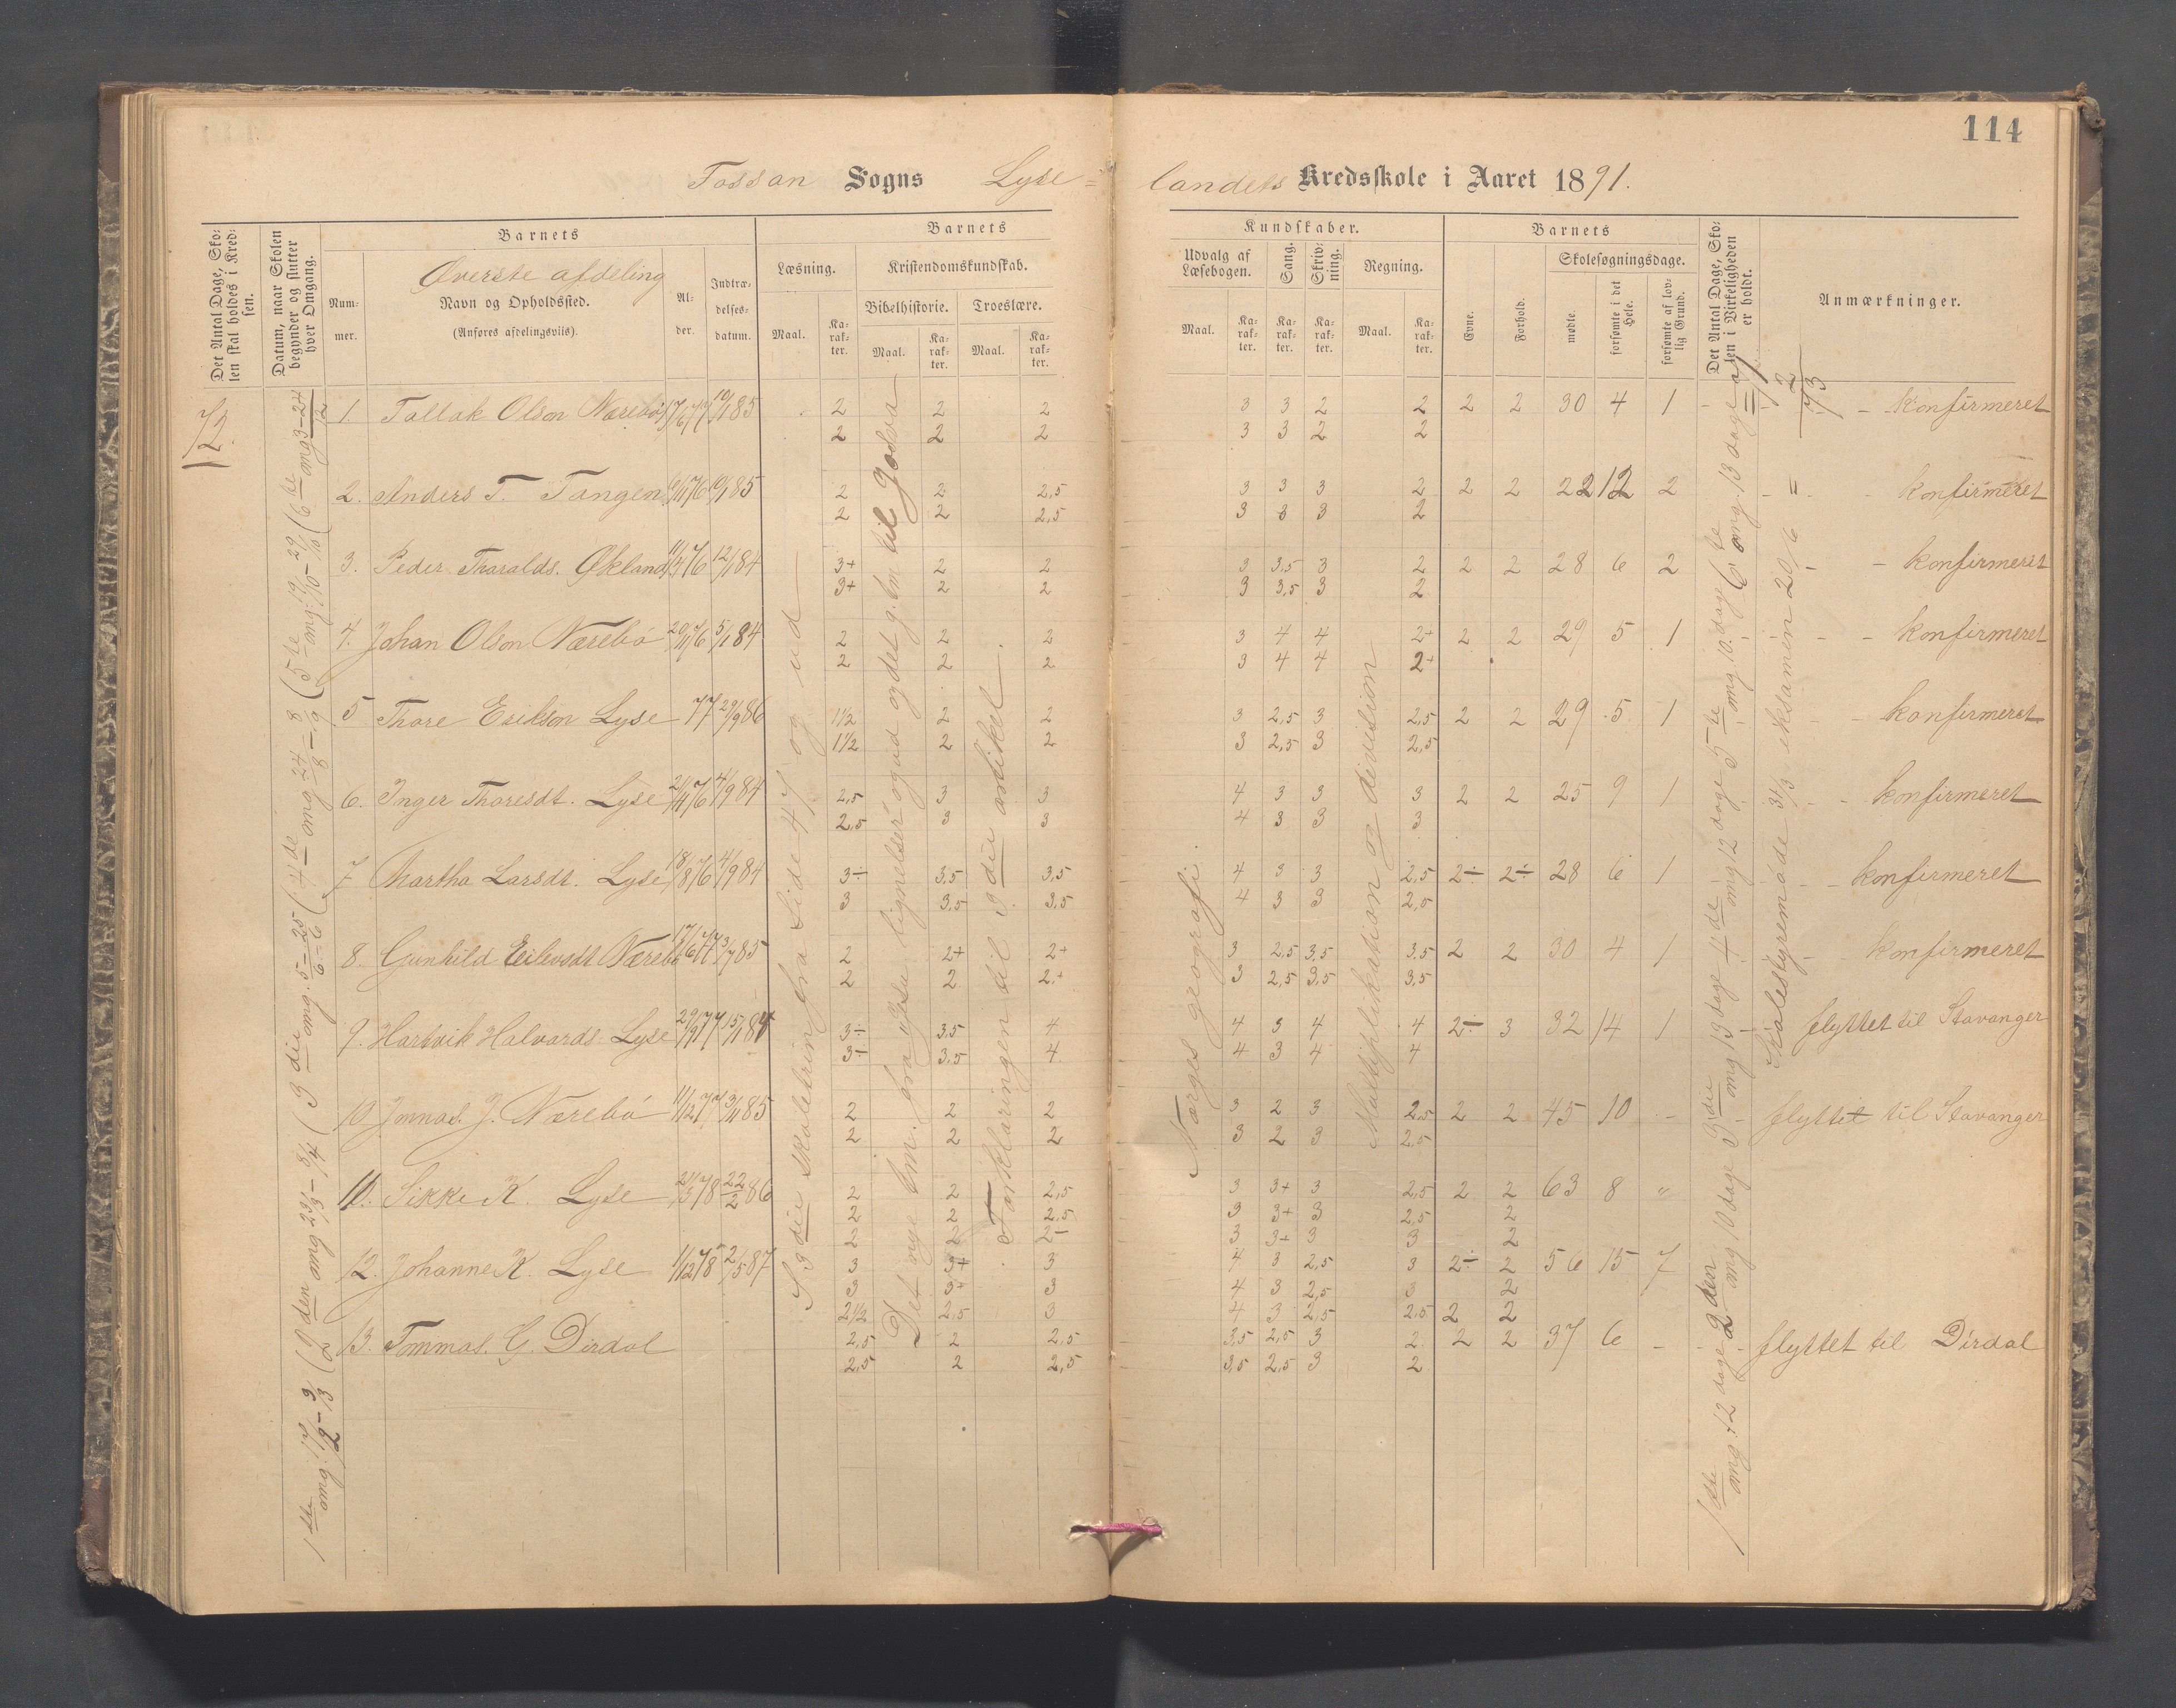 114
Fossan Sogns Lyse=
landets Kredsskole i Aaret 1891.
Det Antal Dage, Sko-
len skal holdes i Kred-
sen.
Datum, naar Skolen
begynder og slutter
hver Omgang.
Barnets
Num-
mer.
Øverste afdeling
Navn og Opholdssted.
(Anføres afdelingsviis).
Al-
der.
Indtræ-
delses-
datum.
Barnets
Læsning.
Kristendomskundskab.
Bibelhistorie.
Troeslære.
Maal.
Ka-
rak-
ter.
Maal.
Ka-
rak-
ter.
Maal.
Ka-
rak-
ter.
Kundskaber.
Udvalg af
Læsebogen.
Sang.
Skriv-
ning.
Regning.
Maal.
Ka-
rak-
ter.
Ka-
rak-
ter.
Ka-
rak-
ter.
Maal.
Ka-
rak-
ter.
Barnets
Evne.
Forhold.
Skolesøgningsdage.
mødte.
forsømte i det
Hele.
forsømte af lov-
lig Grund.
Det Antal Dage, Sko-
len i Virkeligheden
er holdt.
Anmærkninger.
72.
1. Tallak Olson Nærebø 17/6 77 19/1 85 2 2 2 3 3 2 2 2 2 30 4 1 konfirmeret
2 2 2 3 3 2 2
2. Anders T. Tangen 76 85 2 2 2,5 3 3 3 2 2 2 22 12 2 konfirmeret
2 2 2,5 3 3 3 2
3. Peder Tharalds. Økland 11/4 76 12/1 84 3+ 2 2 3 3,5 3 2 2 2 28 6 2 konfirmeret
3+ 2 2 3 3,5 3 2
4. Johan Olson Nærebø 20/11 76 5/1 84 2 2 2 3 4 4 2+ 2 2 29 5 1 konfirmeret
2 2 2 3 4 4 2+
5 Thore Erikson Lyse 77 29/9 86 1½ 2 2 3 2,5 3 2,5 2 2 29 5 1 konfirmeret
1½ 2 2 3 2,5 3 2,5
6. Inger Thoresdt. Lyse 21/4 76 4/9 84 2,5 3 3 4 3 3 3 2 2 25 9 1 konfirmeret
2,5 3 3 4 3 3 3
7 Martha Larsdt. Lyse 18/8 76 4/9 84 3÷ 3,5 3,5 4 3 3 2,5 2÷ 2÷ 28 6 1 konfirmeret
3 3,5 3,5 4 3 3 2,5
8. Gunhild Eilevsdt Nærebø 17/6 77 3/7 85 2 2+ 2+ 3 2,5 3,5 3,5 2 2 30 4 1 konfirmeret
2 2 2+ 3 2,5 3,5 3,5
9. Hartvik Halvards. Lyse 29/9 77 15/1 84 3÷ 3,5 4 4 3 4 4 2÷ 3 32 14 1 flyttet til Stavanger
3÷ 3,5 4 4 3 4 4
10. Jonnas. J. Nærebø 11/12 77 3/11 85 2 2 2 3 2 3 2,5 2 2 45 10 - flyttet til Stavanger
2 2 2 3 2 3 2,5
11. Sikke K. Lyse 21/5 78 22/2 86 2 2 2,5 3 3+ 3 2,5 2 2 63 8 "
2 2 2,5 3 3+ 3 2,5 2
2 2 2÷ 3 3+ 3 3 2
12. Johanne K. Lyse 1/12 78 2/5 87 3 3+ 3 4 3 2,5 3 2÷ 2 56 15 7
3 3+ 3 4 3 2,5 3 2
2½ 2,5 3 4 3 2,5 2,5 2 2
13. Tommas. G. Dirdal 2,5 2 2,5 3,5 2,5 3 2 2 2 37 6 - flyttet til Dirdal
2,5 2 2,5 3,5 2,5 3 2
1ste omg. 17/2 - 3/3 (2den omg 23/3 - 3/4 (3die omg. 5/6 - 25/6 (4de omg 24/8 - 8/9 (5te omg. 19/10 - 29/10 (6te omg 3 - 24/12
3die skoletrin fra side 47 og ud
Det nye tm. fra "Jesu lignelser" og ud og det g. tm til Josva
Forklaringen til 3die artikel.
Norges geografi.
Multiplikation og division
1ste omg. 12 dage 2den omg 10 dage 3die omg 13 dage 4de omg 12 dage 5te omg 10. dag 6te omg. 13 dage
Skolestyremøde 31/3 eksamen 20/6 =
72
73